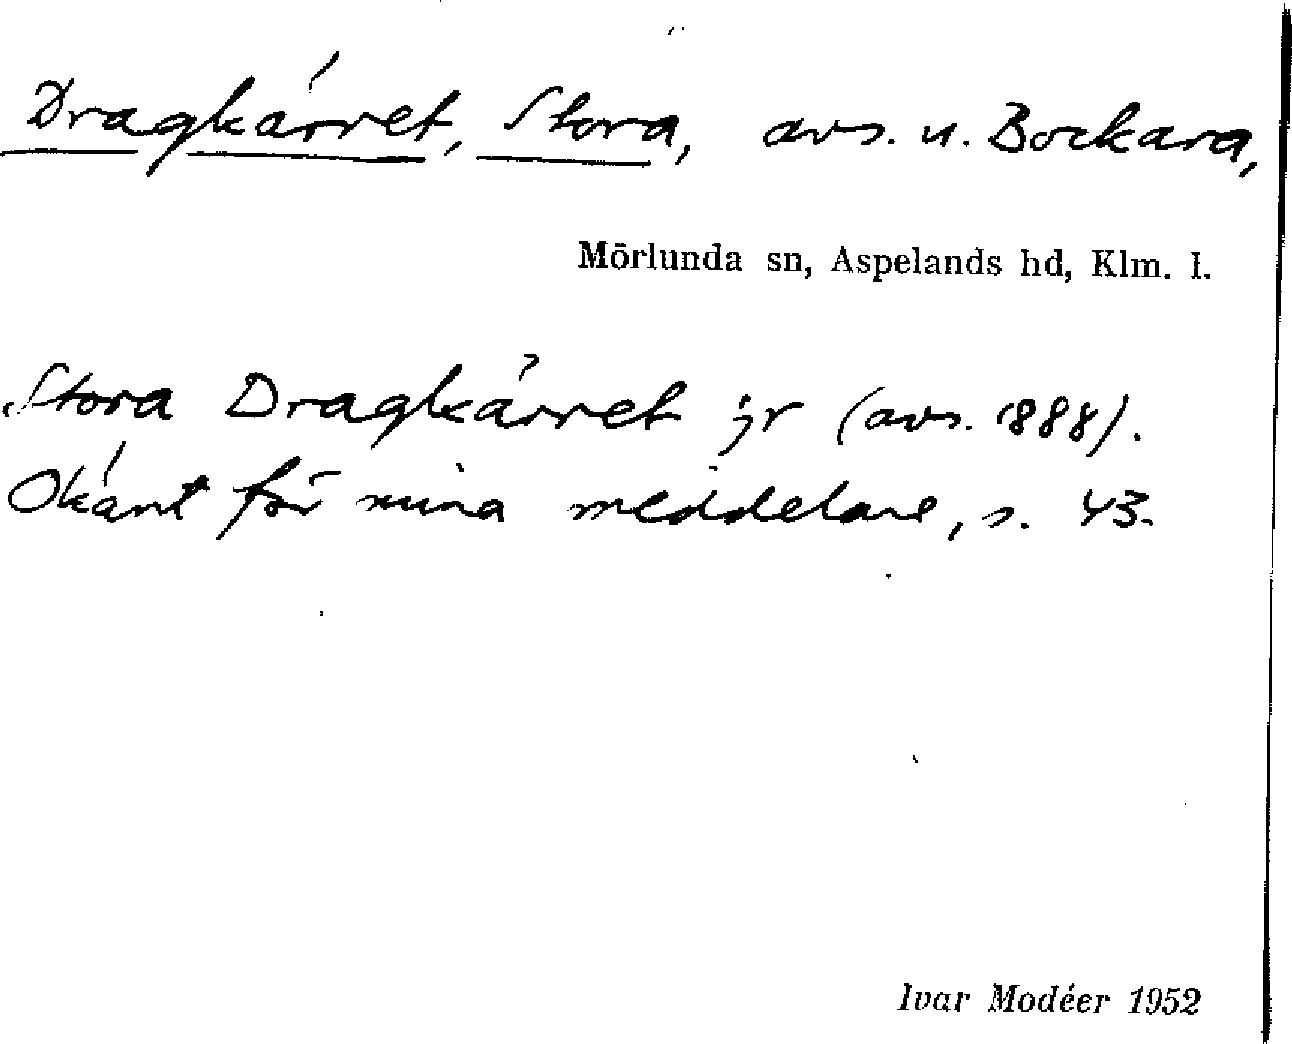 Dragkärret, Stora, avs. u. Bockara,
Mörlunda sn, Aspelands hd, Klm. l.
Stora Dragkärret jr (avs. 1888).
Okänt för mina meddelare, s. 43.
Ivar Modéer 1952